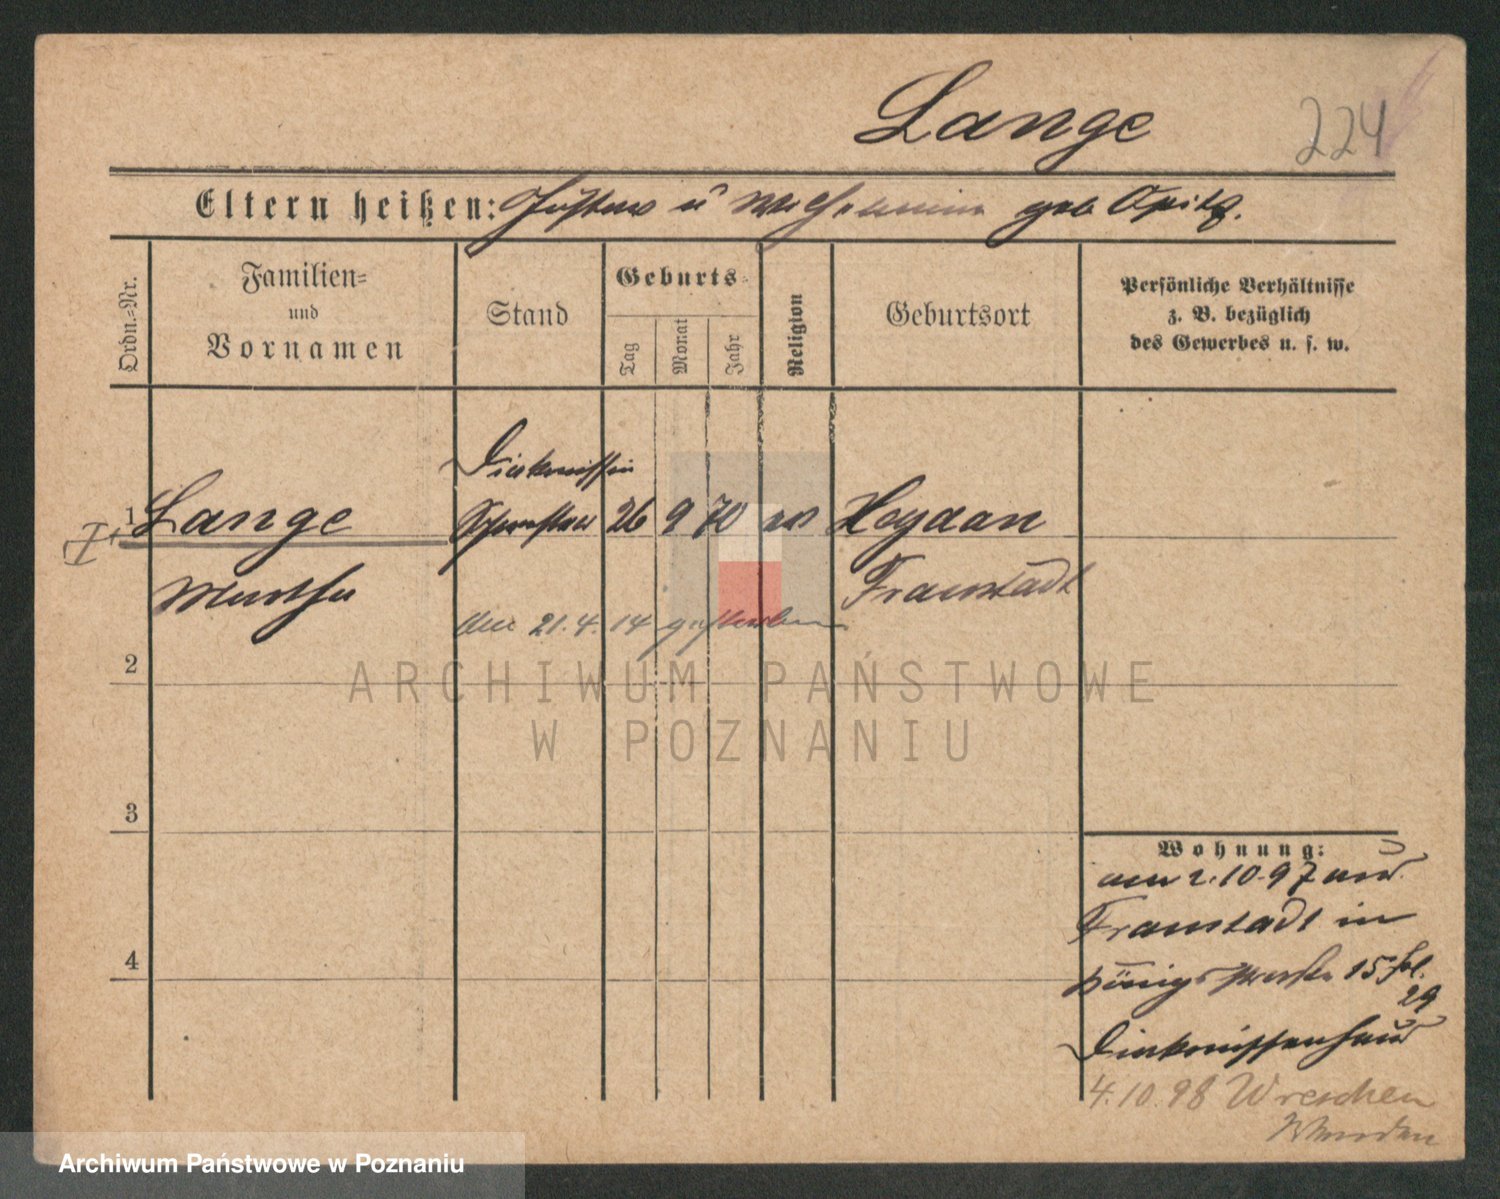 Lange 224
Eltern heißen: Gustav u Wilhelmine geb Opitz.
Ordn.=Nr.
Familien=
und
Vornamen
Stand
Geburts=
Tag
Monat
Jahr
Religion
Geburtsort
Persönliche Verhältnisse
z. B. bezüglich
des Gewerbes u. s. w.
Diakonissin
1 Lange Schwester 26 9 70 ev Heydaan
Martha Fraustadt
den 21.4.14 gestorben
2
ARCHIWUM PAŃSTWOWE
W POZNANIU
3
4
Wohnung:
am 2.10.97 aus
Fraustadt in
Königstraße 15 fol.
29
Diakonissenhaus
4.10.98 Wreschen
Archiwum Państwowe w Poznaniu